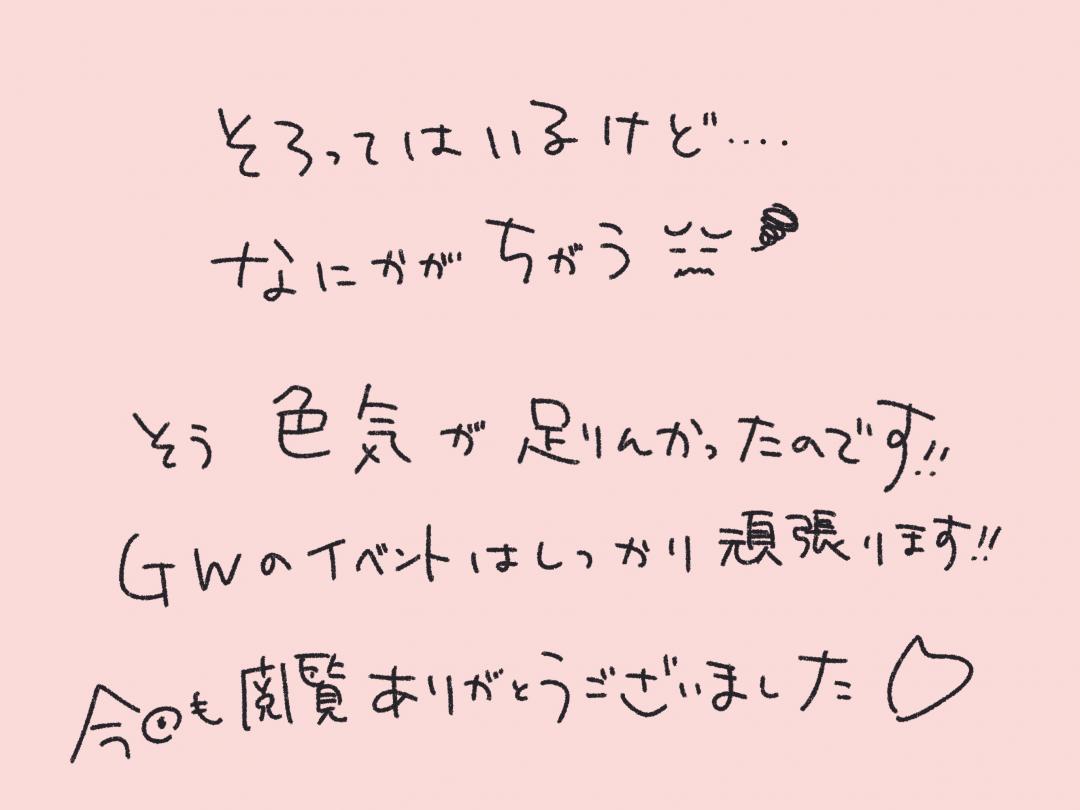 そろってはいるけど‥‥
なにかがちがう
そう色気が足りんかったのです!!
GWのイベントはしっかり頑張ります!!
今回も閲覧ありがとうございました♡